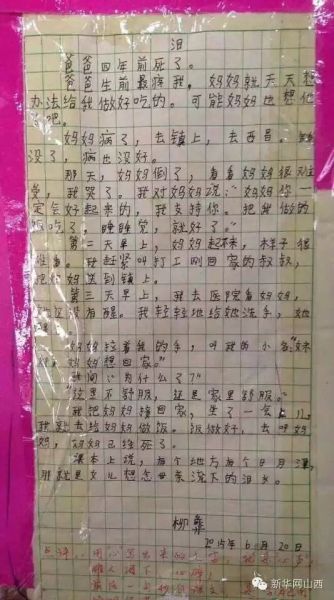 泪
爸爸四年前死了。
爸爸生前最疼我。妈妈就天天想
办法给我做好吃的。可能妈妈也想他
了吧。
妈妈病了，去镇上，去西昌。
没了，病也没好。
那天，妈妈倒了，看看妈妈很难
受，我哭了。我对妈妈说："妈妈你一
定会好起来的，我支持你。把我做的
饭吃了，睡睡觉，就好了。"
第二天早上，妈妈起不来，样子很
难看。我赶紧叫打工刚回家的叔叔，
把妈妈送到镇上。
第三天早上，我去医院看妈妈，
她还没有醒。我轻轻地给她洗手，她
妈妈拉着我的手，叫我的小名：
妈妈想回家。"
我问："为什么了？"
"这里不舒服，还是家里舒服。"
我把妈妈接回家，坐了一会儿，
我就去给妈妈做饭。饭做好，去叫妈
妈，妈妈已经死了。
课本上说，有个地方有个日月潭，
那就是女儿想念母亲流下的泪水。
柳彝
2015年6月20日
点评：用心写出来的
新华网山西